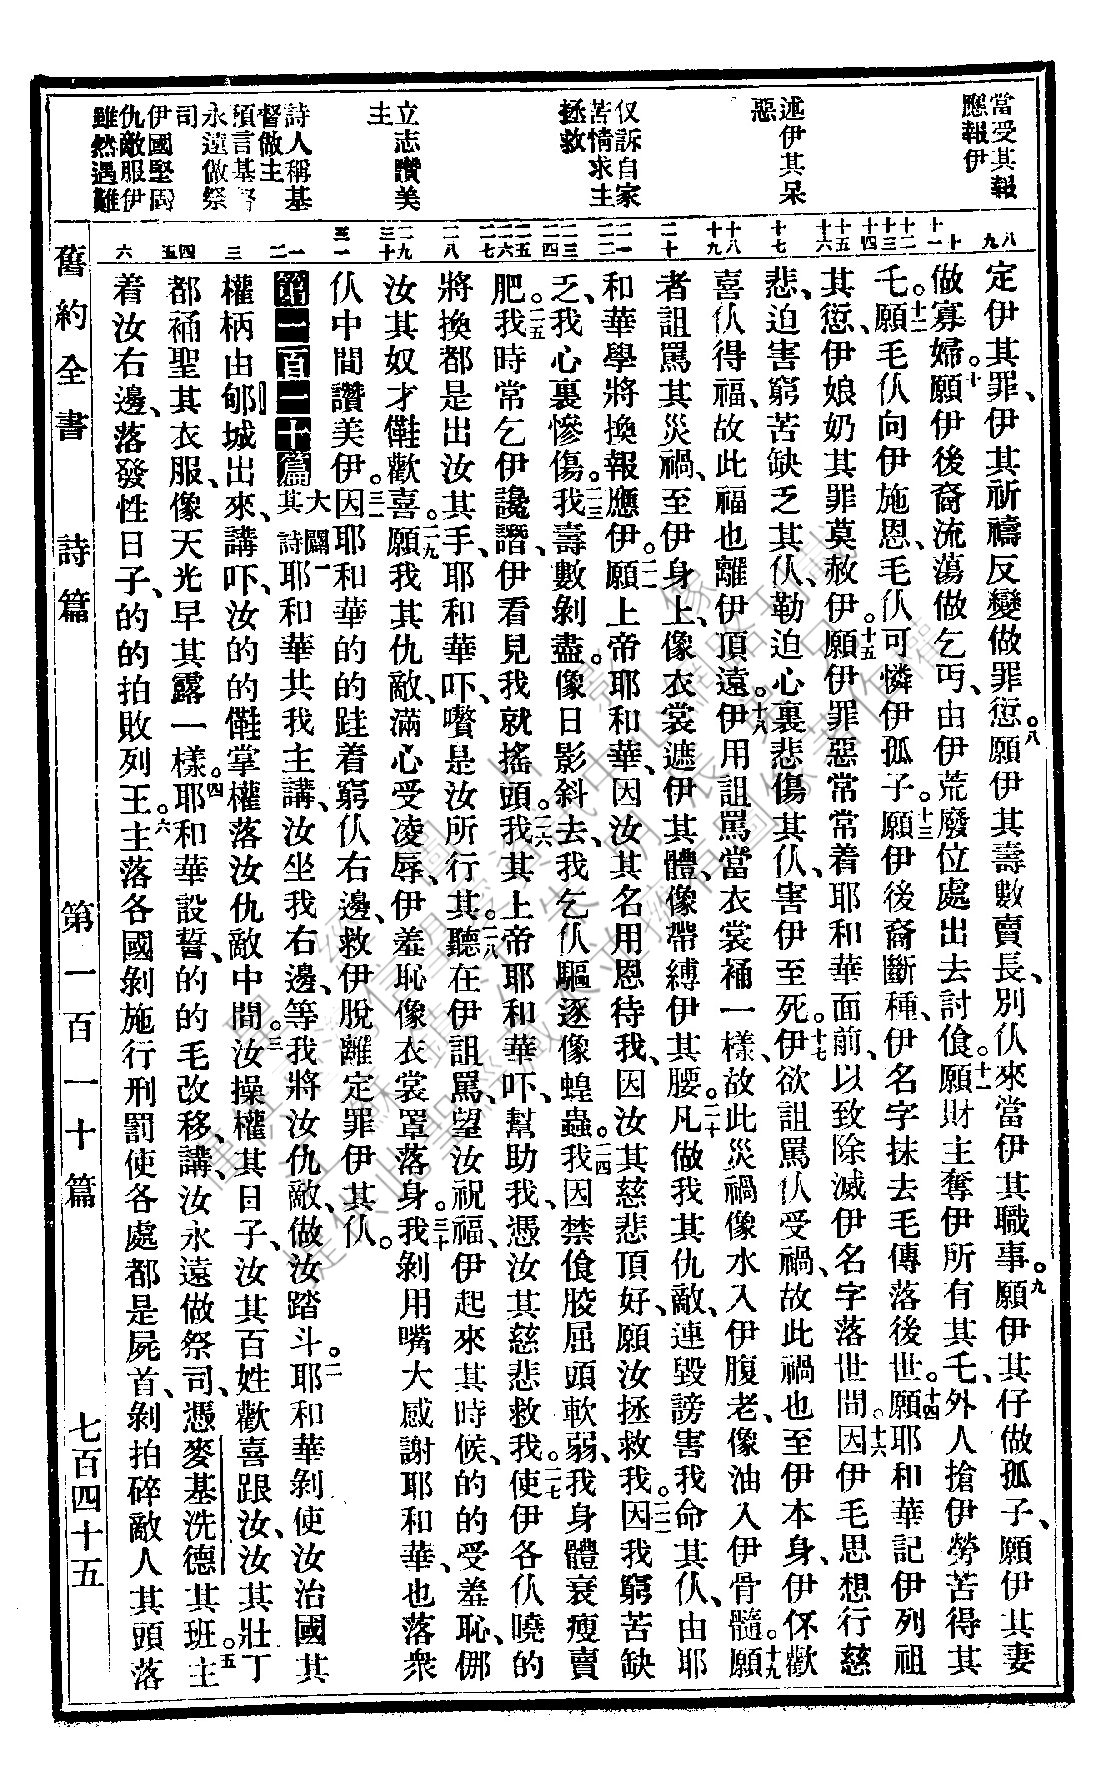 當受其報
應報伊
述伊其呆
惡
仅訴自家
苦情求主
拯救
立志讚美
主
詩人稱基
督做主
預言基督
永遠做祭
司
伊國堅固
仇敵服伊
雖然遇難
八
九
十
十一
十二
十三
十四
十五
十六
十七
十八
十九
二十
二一
二二
二三
二四
二五
二六
二七
二八
二九
三十
三一
一
二
三
四
五
六
定伊其罪、伊其祈禱反變做罪愆。八願伊其壽數賣長、別仈來當伊其職事。九願伊其仔做孤子、願伊其妻
做寡婦。十願伊後裔流蕩做乞丐、由伊荒廢位處出去討食。十一願財主奪伊所有其乇、外人搶伊勞苦得其
乇。十二願毛仈向伊施恩、毛仈可憐伊孤子。十三願伊後裔斷種、伊名字抹去毛傳落後世。十四願耶和華記伊列祖
其愆、伊娘奶其罪莫赦伊。十五願伊罪惡常常着耶和華面前、以致除滅伊名字落世間。十六因伊毛思想行慈
悲、迫害窮苦缺乏其仈、勒迫心裏悲傷其仈、害伊至死。十七伊欲詛罵仈受禍、故此禍也至伊本身、伊伓歡
喜仈得福、故此福也離伊頂遠。十八伊用詛罵當衣裳䘄一樣、故此災禍像水入伊腹老、像油入伊骨髓。十九願
者詛罵其災禍、至伊身上、像衣裳遮伊其體、像帶縛伊其腰。二十凡做我其仇敵、連毀謗害我命其仈、由耶
和華學將換報應伊。二一願上帝耶和華、因汝其名用恩待我、因汝其慈悲頂好、願汝拯救我。二二因我窮苦缺
乏、我心裏慘傷。二三我壽數剝盡。像日影斜去、我乞仈驅逐像蝗蟲。二四我因禁食骹屈頭軟弱、我身體衰瘦賣
肥。二五我時常乞伊讒譖、伊看見我就搖頭。二六我其上帝耶和華吓、幫助我、憑汝其慈悲救我。二七使伊各仈曉的
將換都是出汝其手、耶和華吓、嚽是汝所行其。二八聽在伊詛罵、望汝祝福、伊起來其時候、的的受羞恥、㑚
汝其奴才𠆧歡喜。二九願我其仇敵、滿心受凌辱、伊羞恥像衣裳罩落身。三十我剝用嘴大感謝耶和華、也落眾
仈中間讚美伊。三一因耶和華的的跬着窮仈右邊、救伊脫離定罪伊其仈。
第一百一十篇 大闢一其詩 耶和華共我主講、汝坐我右邊、等我將汝仇敵、做汝踏斗。二耶和華剝使汝治國其
權柄由郇城出來、講吓、汝的的𠆧掌權落汝仇敵中間。三汝操權其日子、汝其百姓歡喜跟汝、汝其壯丁
都䘄聖其衣服、像天光早其露一樣。四耶和華設誓、的的毛改移、講、汝永遠做祭司、憑麥基洗德其班。五主
着汝右邊、落發性日子、的的拍敗列王。六主落各國剝施行刑罰使各處都是屍首、剝拍碎敵人其頭落
舊約全書 詩篇 第一百一十篇 七百四十五